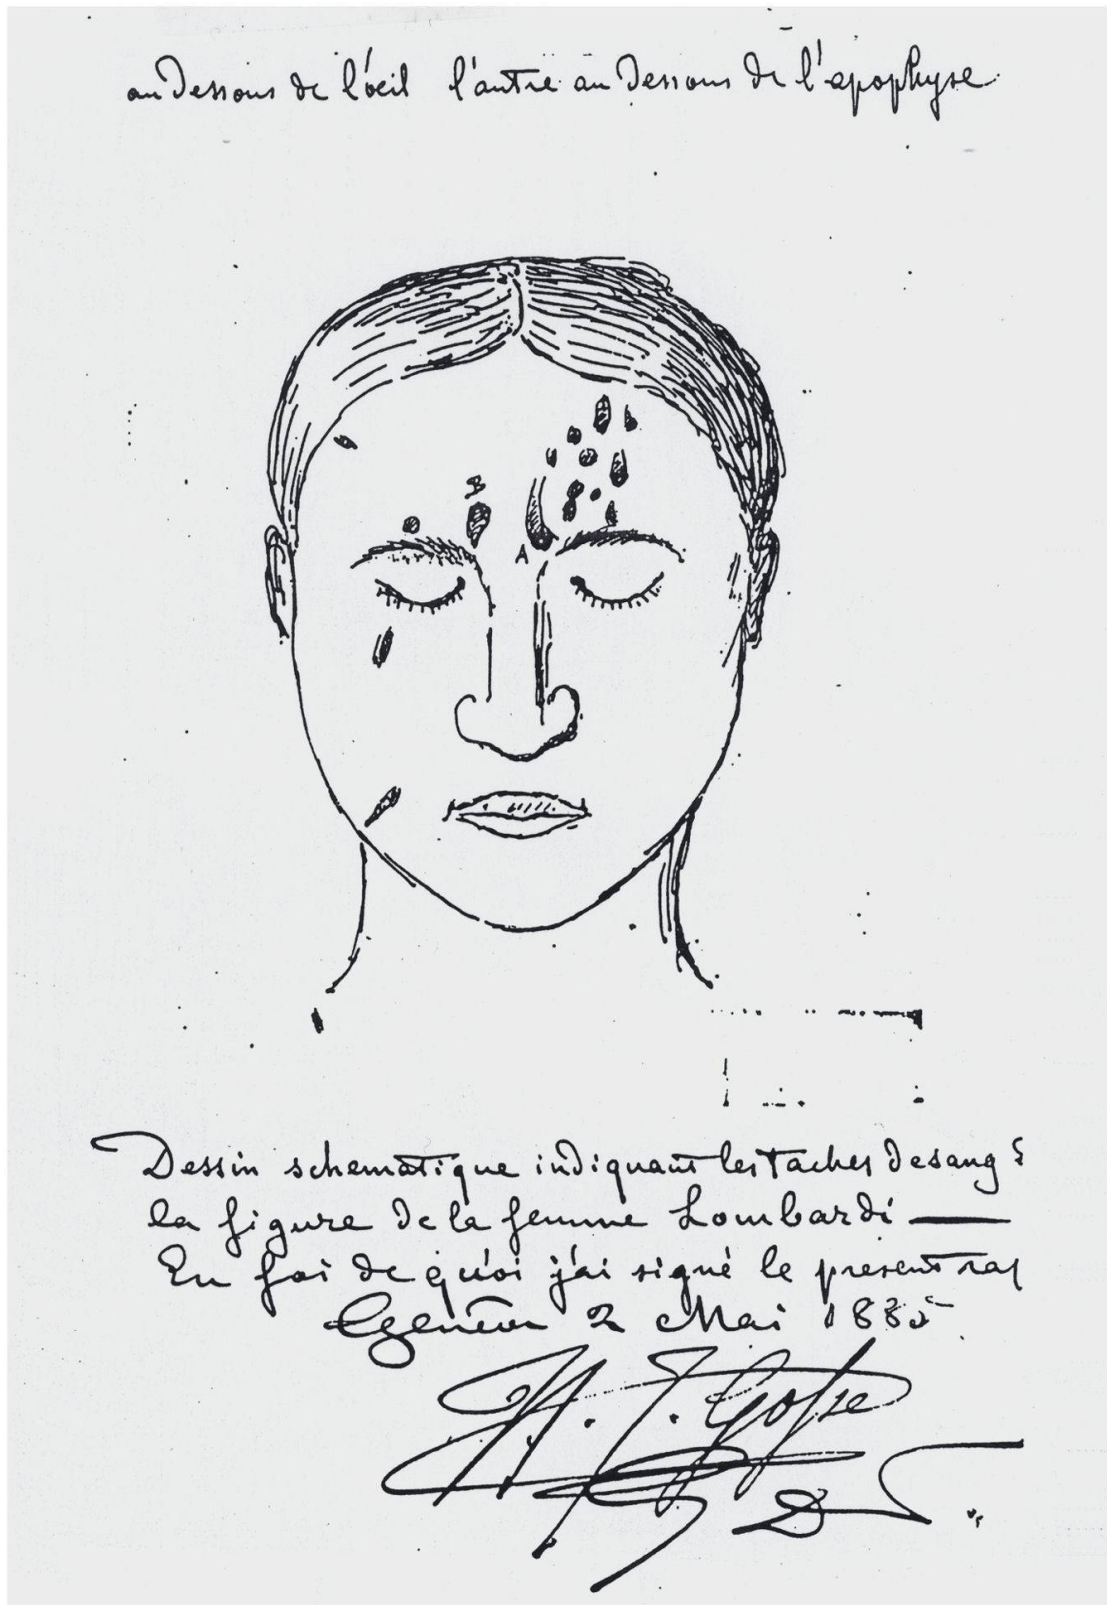 au Dessous de l'œil l'autre au Dessous de l'apophyse
B
A
Dessin schematique indiquant les Taches de sang
la figure de la femme Lombardi —
En foi de quoi j'ai signé le present rap
Genève 2 Mai 1885
H. J. Gosse
D